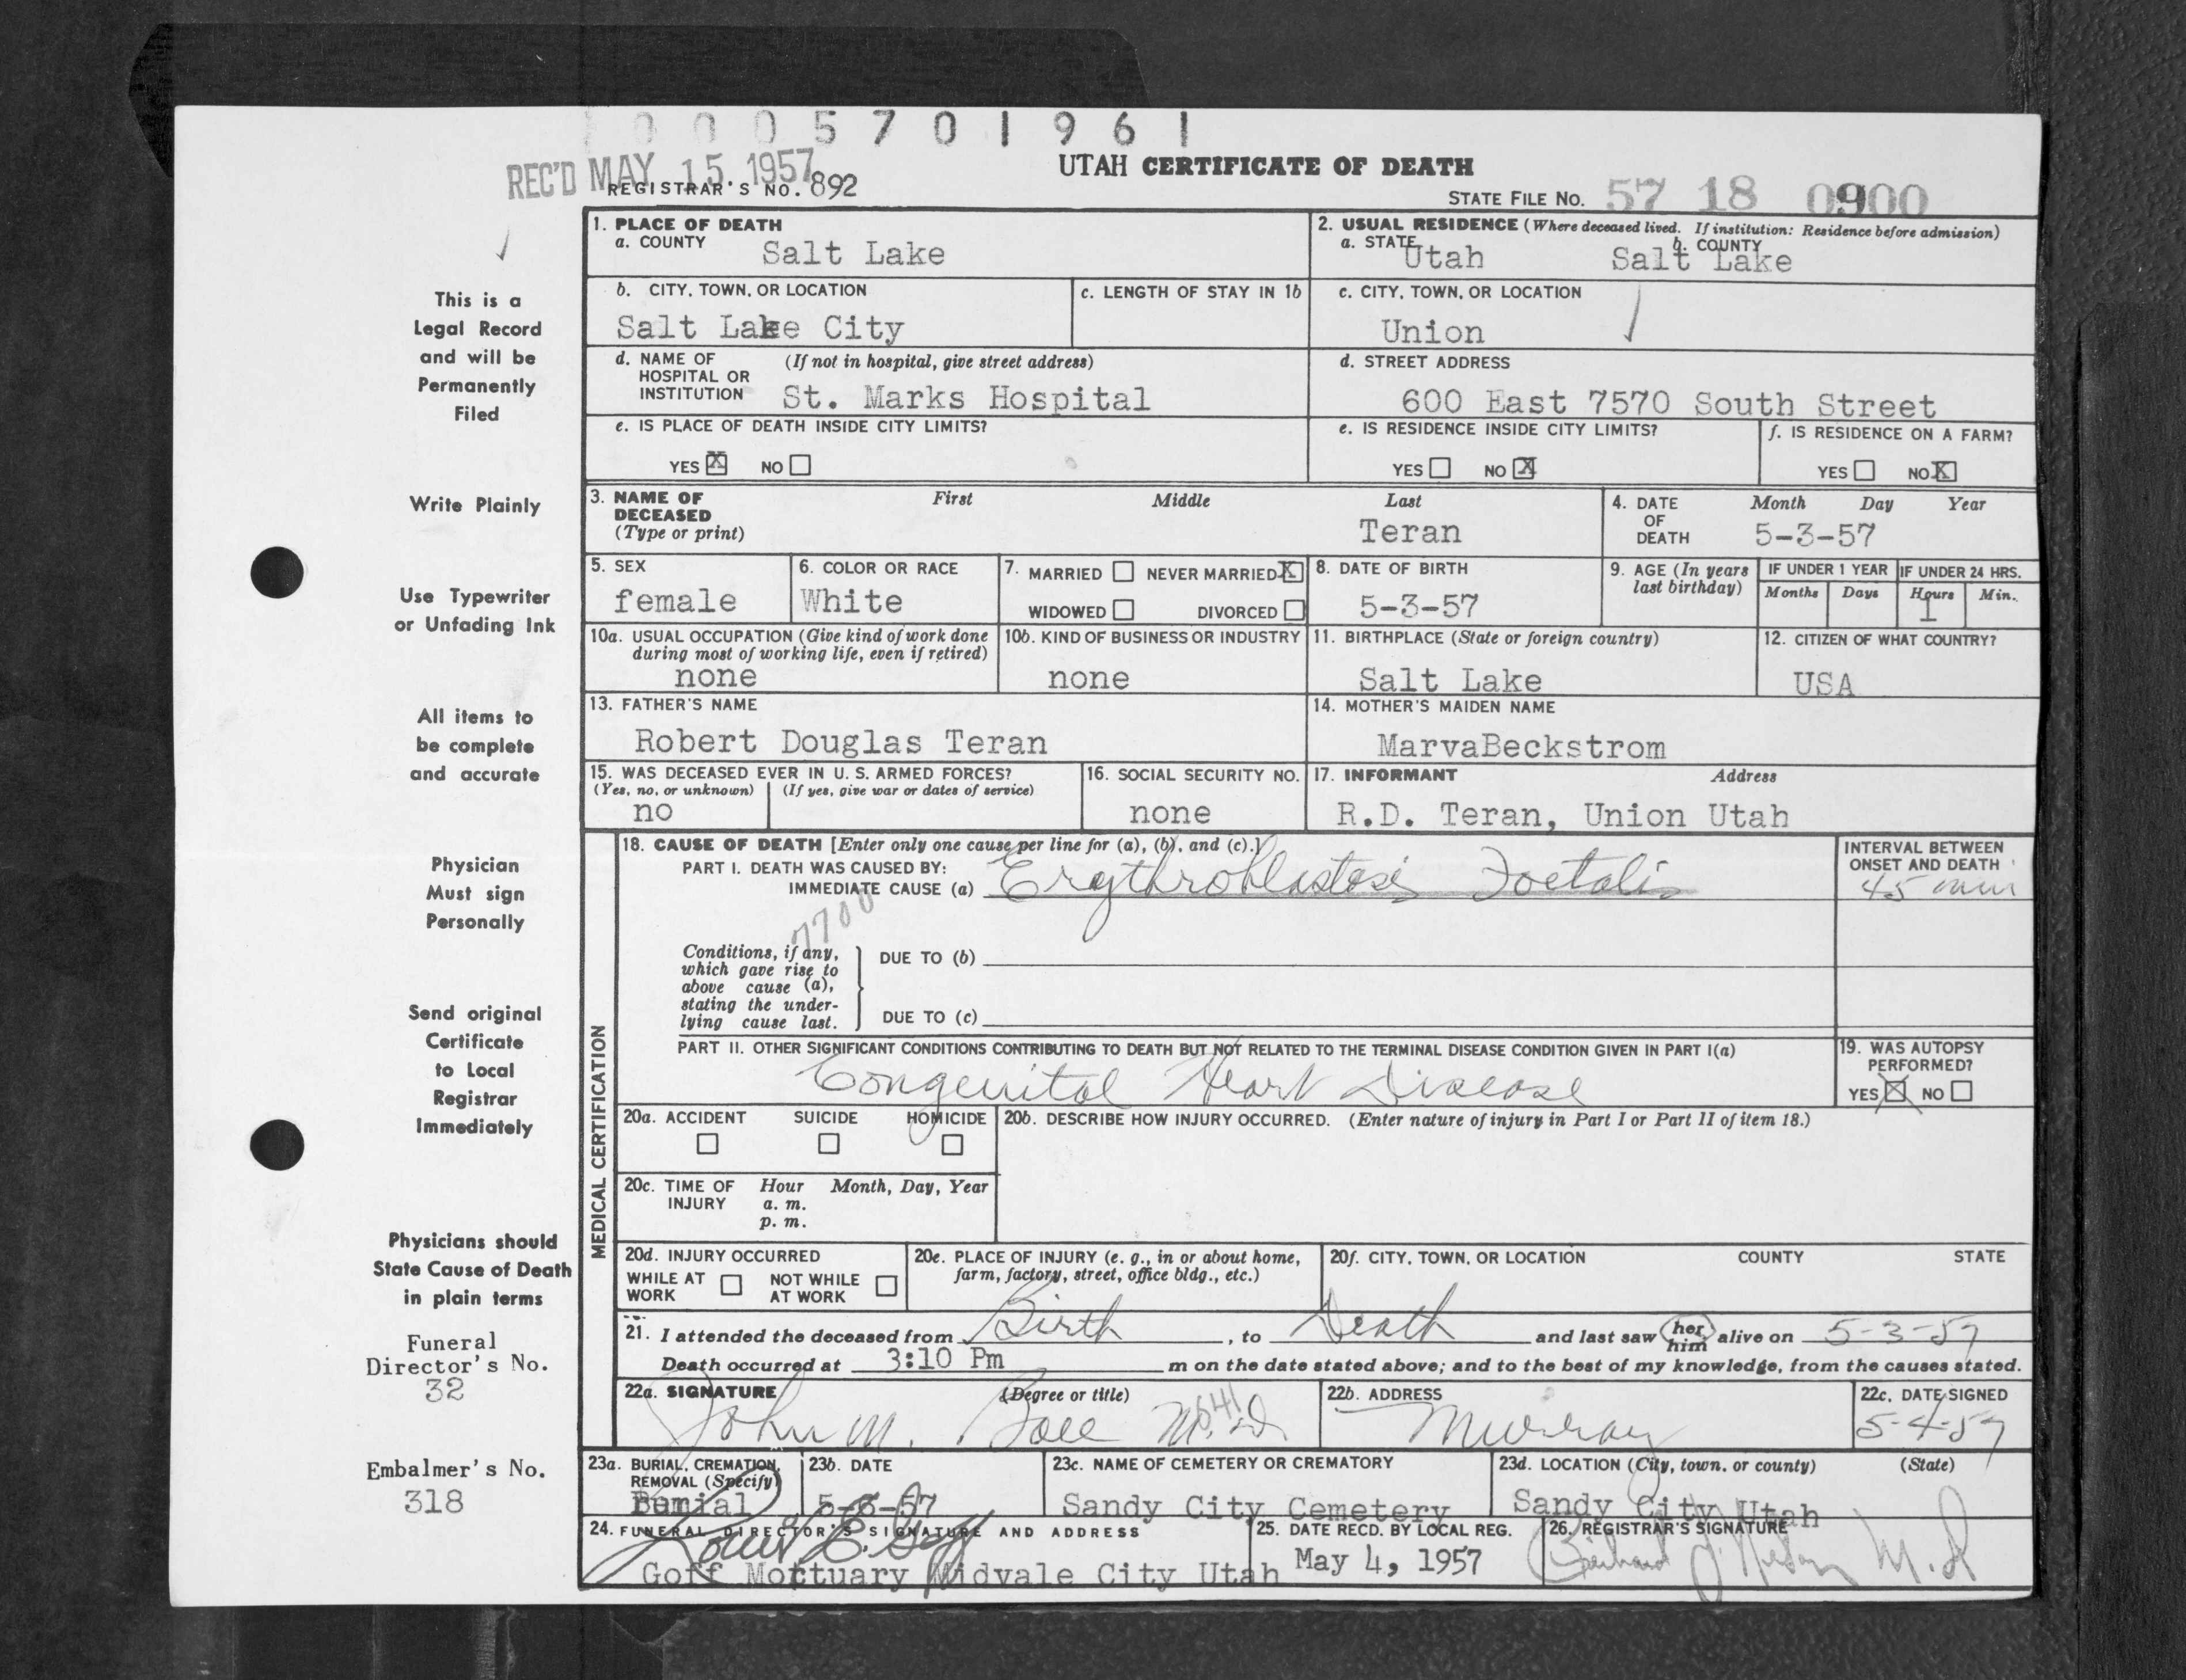 0005701961
REC'D MAY 15 1957
REGISTRAR'S NO. 892
UTAH CERTIFICATE OF DEATH
STATE FILE NO. 57 18 0900
This is a
Legal Record
and will be
Permanently
Filed
Write Plainly
Use Typewriter
or Unfading Ink
All items to
be complete
and accurate
Physician
Must sign
Personally
Send original
Certificate
to Local
Registrar
Immediately
Physicians should
State Cause of Death
in plain terms
Funeral
Director's No.
32
Embalmer's No.
318
1. PLACE OF DEATH
a. COUNTY Salt Lake
2. USUAL RESIDENCE (Where deceased lived. If institution: Residence before admission)
a. STATE Utah b. COUNTY Salt Lake
b. CITY, TOWN, OR LOCATION
Salt Lake City
c. LENGTH OF STAY IN 1b
c. CITY, TOWN, OR LOCATION
Union
d. NAME OF HOSPITAL OR INSTITUTION (If not in hospital, give street address)
St. Marks Hospital
d. STREET ADDRESS
600 East 7570 South Street
e. IS PLACE OF DEATH INSIDE CITY LIMITS?
YES X NO
e. IS RESIDENCE INSIDE CITY LIMITS?
YES NO X
f. IS RESIDENCE ON A FARM?
YES NO X
3. NAME OF DECEASED (Type or print) First Middle Last
Teran
4. DATE OF DEATH Month Day Year
5-3-57
5. SEX
female
6. COLOR OR RACE
White
7. MARRIED NEVER MARRIED X
WIDOWED DIVORCED
8. DATE OF BIRTH
5-3-57
9. AGE (In years last birthday)
IF UNDER 1 YEAR
Months Days
IF UNDER 24 HRS.
Hours Min.
1
10a. USUAL OCCUPATION (Give kind of work done during most of working life, even if retired)
none
10b. KIND OF BUSINESS OR INDUSTRY
none
11. BIRTHPLACE (State or foreign country)
Salt Lake
12. CITIZEN OF WHAT COUNTRY?
USA
13. FATHER'S NAME
Robert Douglas Teran
14. MOTHER'S MAIDEN NAME
MarvaBeckstrom
15. WAS DECEASED EVER IN U. S. ARMED FORCES?
(Yes, no, or unknown) (If yes, give war or dates of service)
no
16. SOCIAL SECURITY NO.
none
17. INFORMANT Address
R.D. Teran, Union Utah
MEDICAL CERTIFICATION
18. CAUSE OF DEATH [Enter only one cause per line for (a), (b), and (c).]
PART I. DEATH WAS CAUSED BY:
IMMEDIATE CAUSE (a) Erythroblastosis Foetalis
INTERVAL BETWEEN ONSET AND DEATH
45 min
7700
Conditions, if any, which gave rise to above cause (a), stating the underlying cause last.
DUE TO (b)
DUE TO (c)
PART II. OTHER SIGNIFICANT CONDITIONS CONTRIBUTING TO DEATH BUT NOT RELATED TO THE TERMINAL DISEASE CONDITION GIVEN IN PART I(a)
Congenital Heart Disease
19. WAS AUTOPSY PERFORMED?
YES X NO
20a. ACCIDENT SUICIDE HOMICIDE
20b. DESCRIBE HOW INJURY OCCURRED. (Enter nature of injury in Part I or Part II of item 18.)
20c. TIME OF INJURY Hour Month, Day, Year
a. m.
p. m.
20d. INJURY OCCURRED
WHILE AT WORK NOT WHILE AT WORK
20e. PLACE OF INJURY (e. g., in or about home, farm, factory, street, office bldg., etc.)
20f. CITY, TOWN, OR LOCATION COUNTY STATE
21. I attended the deceased from Birth, to Death and last saw her him alive on 5-3-57
Death occurred at 3:10 Pm m on the date stated above; and to the best of my knowledge, from the causes stated.
22a. SIGNATURE (Degree or title)
John M. M.D.
22b. ADDRESS
Murray
22c. DATE SIGNED
5-4-57
23a. BURIAL, CREMATION, REMOVAL (Specify)
Burial
23b. DATE
23c. NAME OF CEMETERY OR CREMATORY
Sandy City Cemetery
23d. LOCATION (City, town, or county) (State)
Sandy City Utah
24. FUNERAL DIRECTOR'S SIGNATURE AND ADDRESS
Goff Mortuary Midvale City Utah
25. DATE RECD. BY LOCAL REG.
May 4, 1957
26. REGISTRAR'S SIGNATURE
M.D